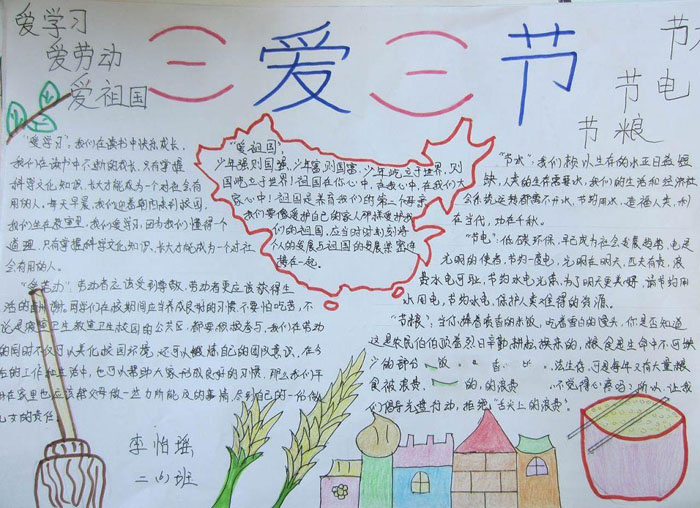 爱学习
爱劳动
爱祖国
三爱三节
节水
节电
节粮
"爱学习",我们在读书中快乐成长,
我们在读书中不断的成长,只有掌握
科学文化知识,长大才能成为一个对社会有
用的人。每天早晨,我们迎着朝阳来到校园,
我们坐在教室里,我们爱学习,因为我们懂得一个
道理,只有掌握科学文化知识,长大才能成为一个对社
会有用的人。
"爱劳动",劳动者应该受到尊敬,劳动者更应该获得生
活的
同学们在校期间应当养成良好的习惯,不要怕吃苦,不
论是
卫生教室卫生校园的公共区,都要积极参与,我们在劳动
的同时不仅可以美化校园环境,还可以锻炼自己的团队意识,在今
后的工作和生活中,也可以帮助大家形成良好的习惯,那么我们平
时在家里也应该帮父母做一些力所能及的事情,尽到自己的一份做
儿女的责任。
"爱祖国",
少年强则国强,少年富则国富,少年屹立于世界,则
国屹立于世界!祖国在你心中,在我心中,在我们大
家心中!祖国是养育我们的第一个母亲
我们要像爱护自己的家人那样爱护我
们的祖国,应当时时刻刻将
个人的发展与祖国的发展紧密连
接在一起。
"节水",我们赖以生存的水正日益短
缺,人类的生存需要水,我们的生活和经济社
会系统运转都离不开水,节约用水,造福人类,利
在当代,功在千秋。
"节电",低碳环保,早已成为社会发展趋势,电是
光明的使者,节约一度电,光明在明天,
水电可耻,节约水电光荣,为了明天更美好,请节约用
水用电,节约水电,保护人类难得的资源。
"节粮",当你捧着喷香的米饭,吃着雪白的馒头,你是否知道
这是农民伯伯顶着烈日辛勤耕耘换来的,粮食是生命中不可缺
少的部分
法生存,可是每年又有大量粮
食被浪费,
的浪费
不觉得心疼吗?所以,让我
们倡导光盘行动,拒绝"舌尖上的浪费"。
李怡瑶